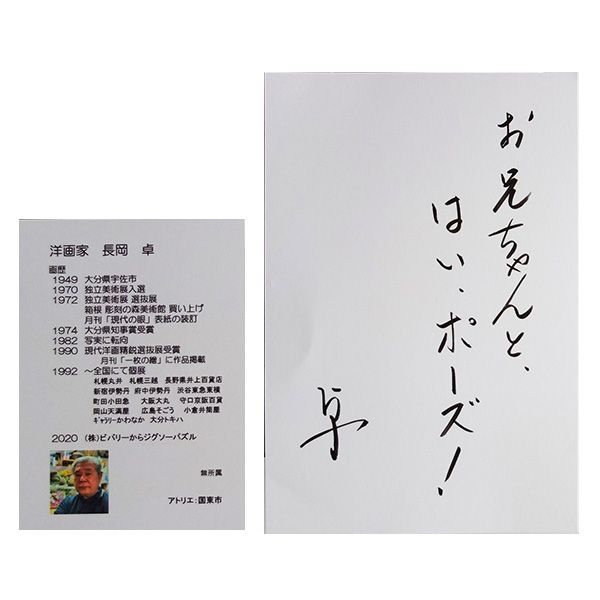 洋画家 長岡 卓
画歴
1949 大分県宇佐市
1970 独立美術展入選
1972 独立美術展 選抜展
箱根 彫刻の森美術館 買い上げ
月刊「現代の眼」表紙の装訂
1974 大分県知事賞受賞
1982 写実に転向
1990 現代洋画精鋭選抜展受賞
月刊「一枚の繪」に作品掲載
1992 ～全国にて個展
札幌丸井 札幌三越 長野県井上百貨店
新宿伊勢丹 府中伊勢丹 渋谷東急東横
町田小田急 大阪大丸 守口京阪百貨
岡山天満屋 広島そごう 小倉井筒屋
ギャラリーかわなか 大分トキハ
2020 (株)ビバリーからジグソーパズル
無所属
アトリエ:国東市
お兄ちゃんと、
はい、ポーズ!
卓